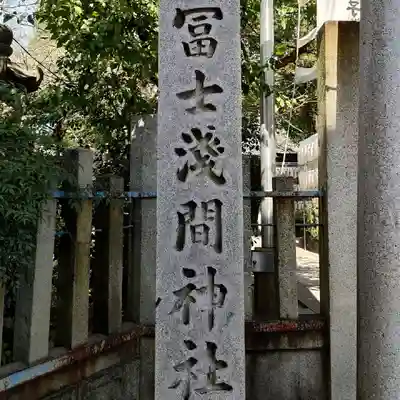 冨士淺間神社